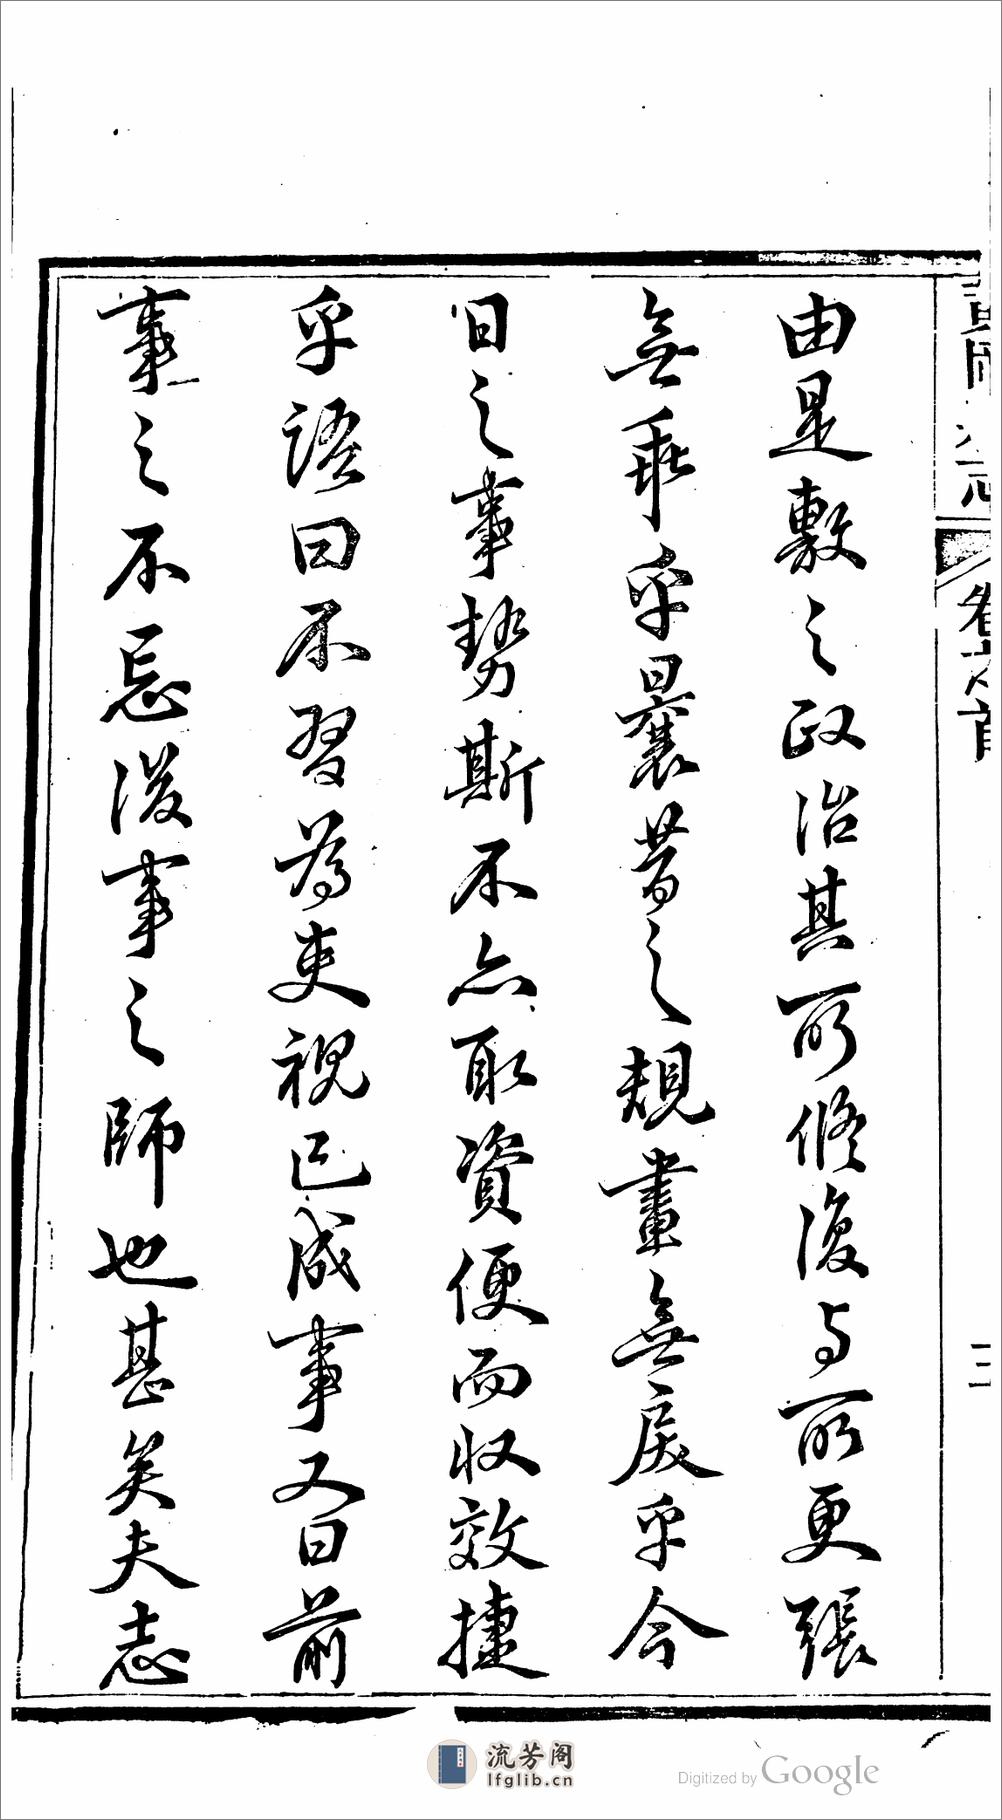 由是敷之政治其所修復与所更張
無乖乎曩昔之規畫無戾乎今
日之事勢斯不亦取資便而収效捷
乎語曰不習為吏視已成事又曰前
事之不忘後事之師也甚矣夫志
卷之首
三
流芳阁
lfglib.cn
Digitized by Google